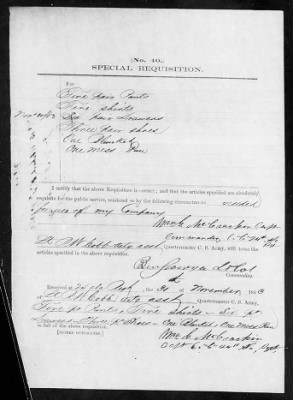 [No. 40.]
SPECIAL REQUISITION.
For
Five pair Pants
Five shirts
Six pair Drawers
Three pair shoes
One Blanket
One mess Pan
I certify that the above Requisition is correct; and that the articles specified are absolutely
requisite for the public service, rendered so by the following circumstances: needed
for use of my Company
Wm C McCrackin Capt
Commander
Quartermaster C. S. Army, will issue the
articles specified in the above requisition.
Commanding.
Received at the 30th of November 1863
of Quartermaster C. S. Army,
Five pr Pants Five shirts six pr
Drawers Three pr Shoes One Blanket one mess Pan
in full of the above requisition.
[SIGNED DUPLICATES.]
Wm C McCrackin
Capt